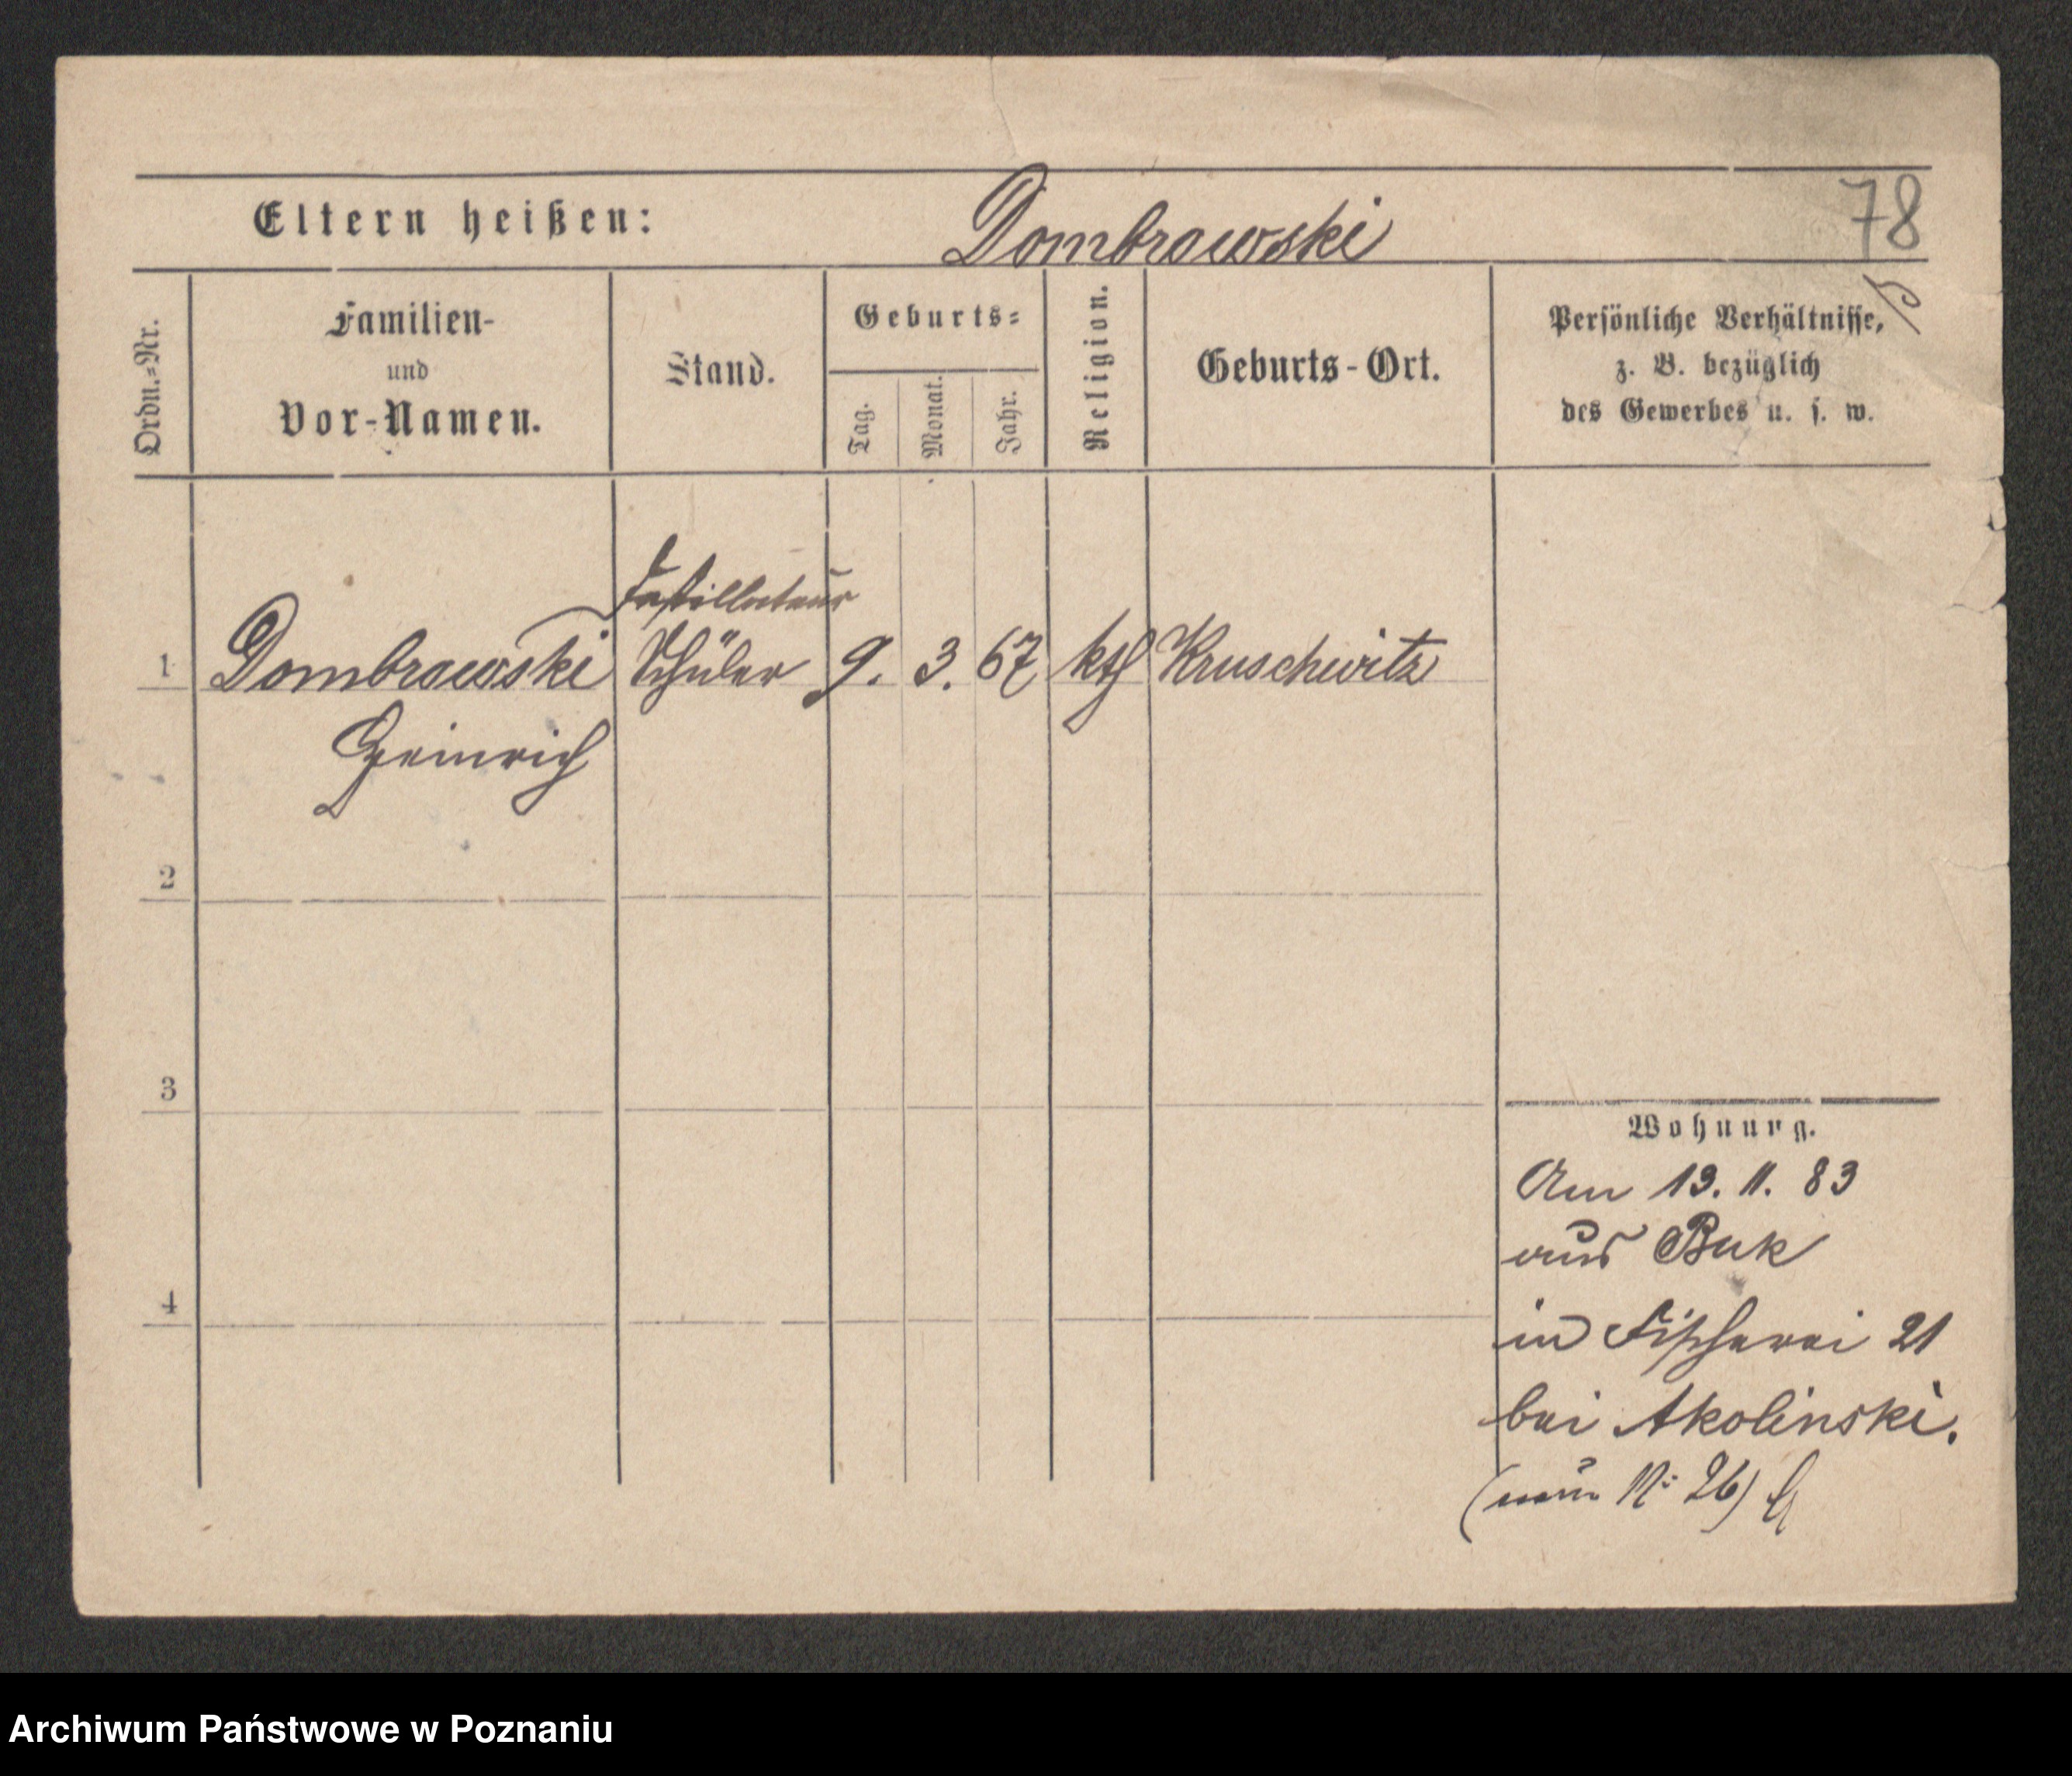 Eltern heißen: Dombrowski 78
Ordn.=Nr.
Familien-
und
Vor-Namen.
Stand.
Geburts=
Tag.
Monat.
Jahr.
Religion.
Geburts-Ort.
Persönliche Verhältnisse,
z. B. bezüglich
des Gewerbes u. s. w.
1 Dombrowski Schüler 9. 3. 67 kth Kruschwitz
Heinrich
2
3
4
Wohnung.
Am 13. 11. 83
aus Buk
in Fischerei 21
bei Akolinski.
(nun No 26)
Archiwum Państwowe w Poznaniu